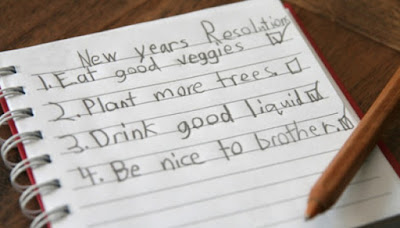 New years Resolution
1. Eat good veggies ☑
2. Plant more trees. ☐
3. Drink good liquid ☑
4. Be nice to brother. ☑